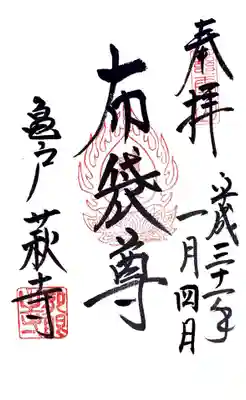 奉拝
平成三十一年
一月四日
布袋尊
亀戸
萩寺